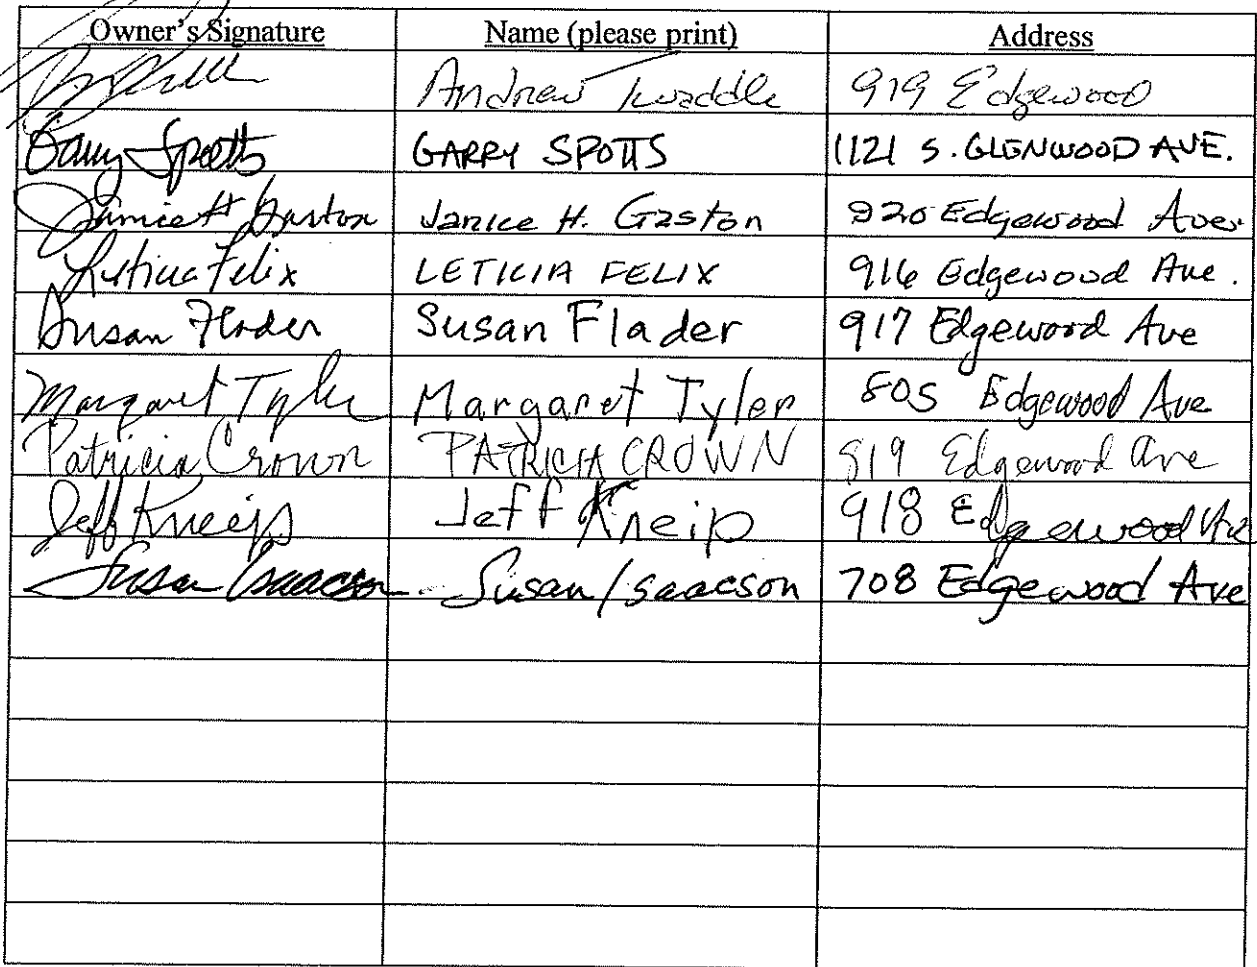 Owner's Signature Name (please print) Address
Andrew Twaddle 919 Edgewood
Garry Spotts GARRY SPOTTS 1121 S. GLENWOOD AVE.
Janice H Gaston Janice H. Gaston 920 Edgewood Ave.
Leticia Felix LETICIA FELIX 916 Edgewood Ave.
Susan Flader Susan Flader 917 Edgewood Ave
Margaret Tyler Margaret Tyler 805 Edgewood Ave
Patricia Crown PATRICIA CROWN 819 Edgewood Ave
Jeff Kneip Jeff Kneip 918 Edgewood Ave
Susan Isaacson Susan Isaacson 708 Edgewood Ave